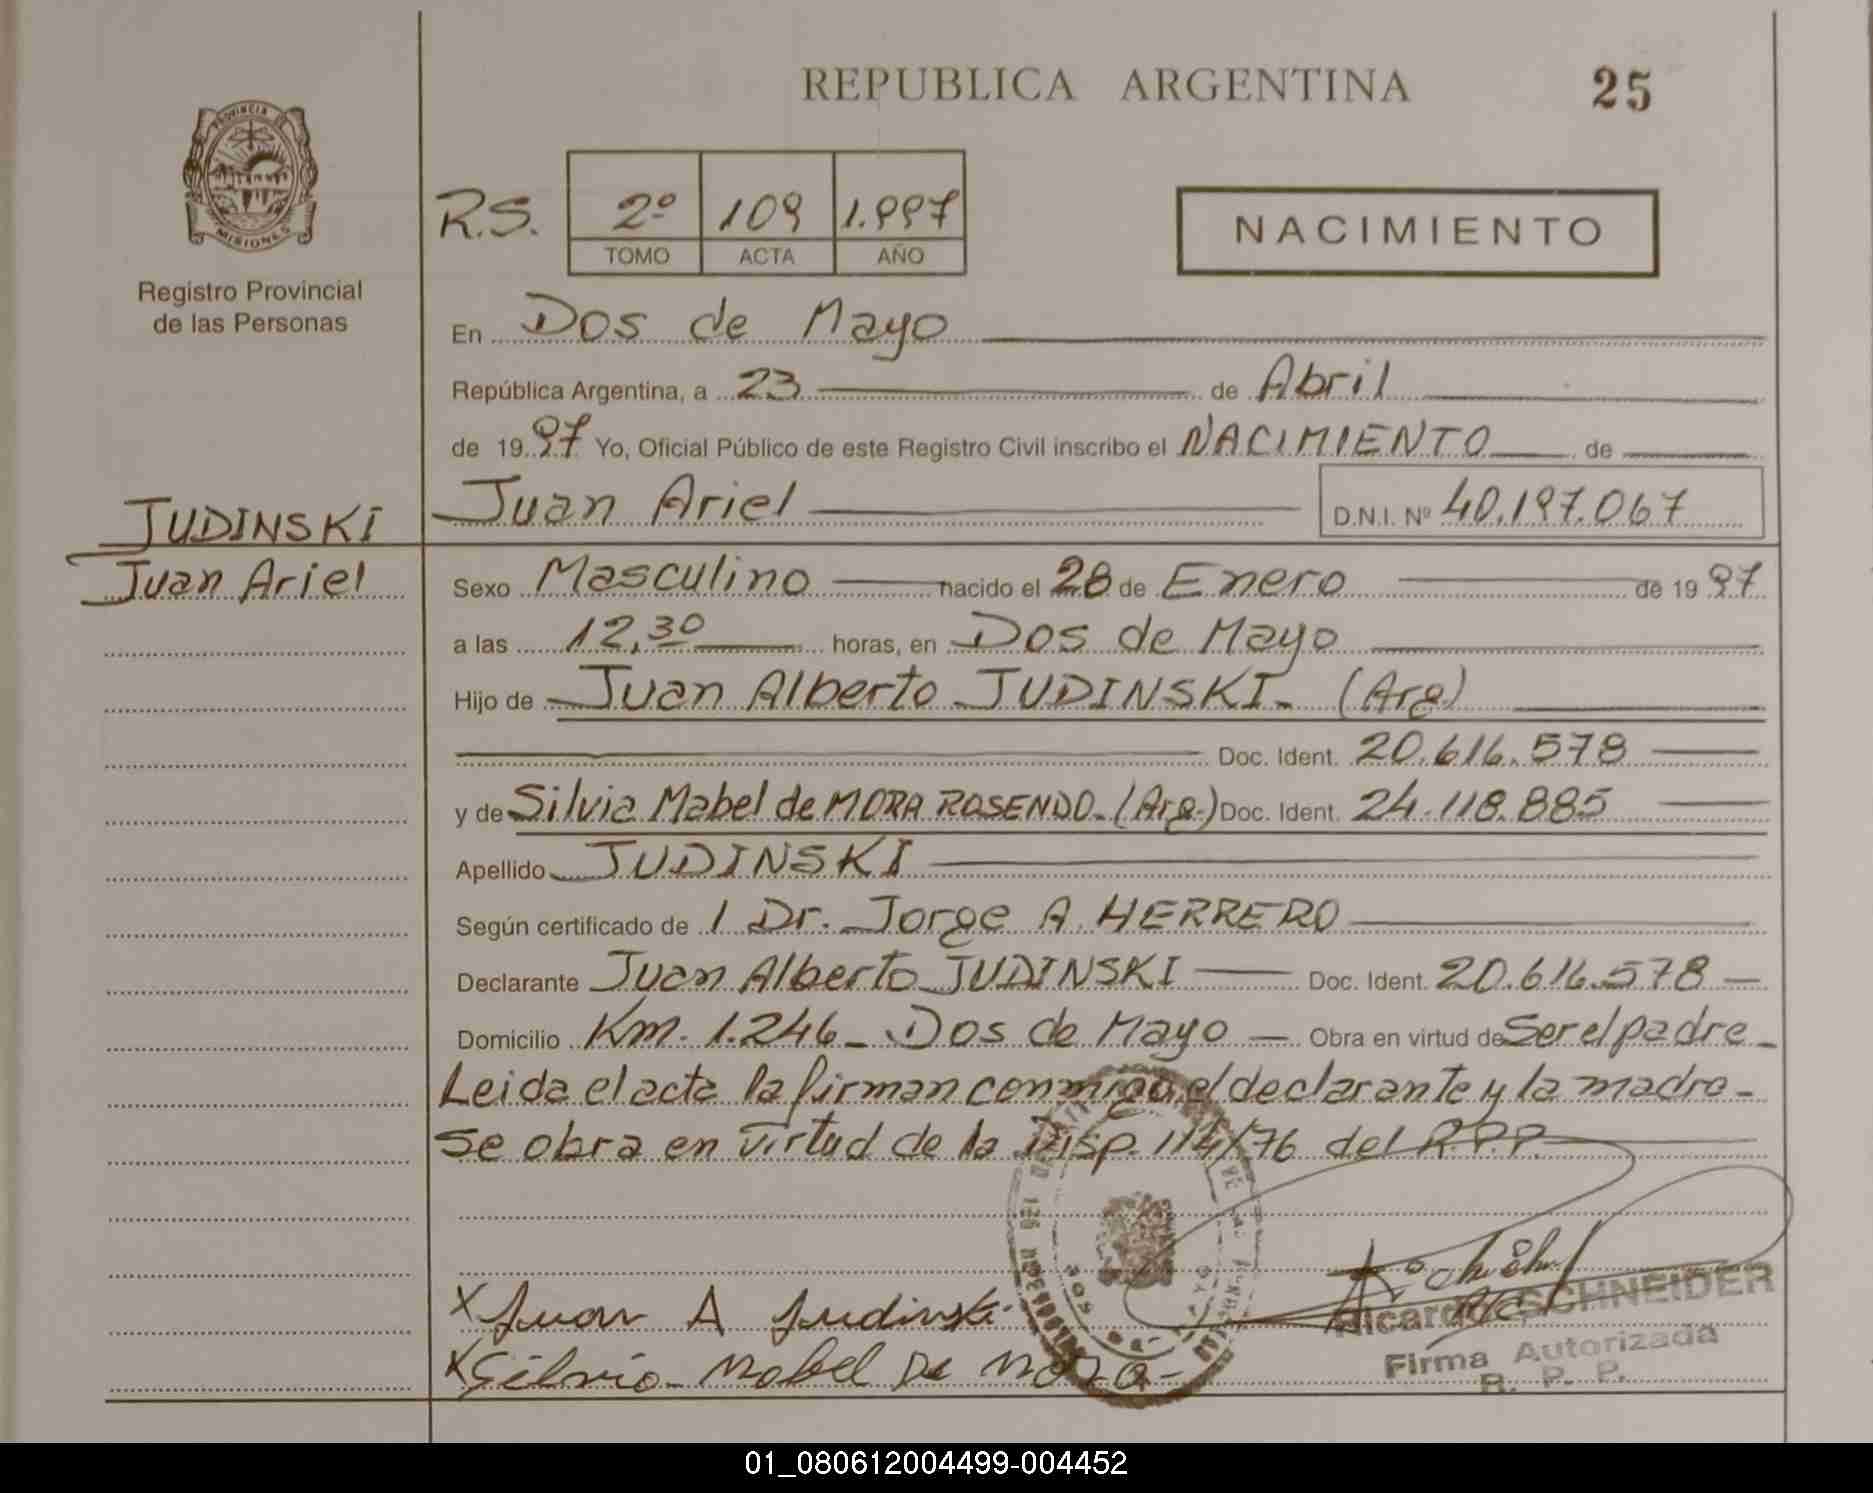 REPUBLICA ARGENTINA
25
PROVINCIA DE
MISIONES
Registro Provincial
de las Personas
R.S.
2º 109 1.997
TOMO ACTA AÑO
NACIMIENTO
En Dos de Mayo
República Argentina, a 23 de Abril
de 19 97 Yo, Oficial Público de este Registro Civil inscribo el NACIMIENTO de
JUDINSKI
Juan Ariel
Juan Ariel D.N.I. Nº 40.197.067
Sexo Masculino nacido el 28 de Enero de 19 97
a las 12,30 horas, en Dos de Mayo
Hijo de Juan Alberto JUDINSKI. (Arg)
Doc. Ident. 20.616.578
y de Silvia Mabel de MORA ROSENDO. (Arg.) Doc. Ident. 24.118.885
Apellido JUDINSKI
Según certificado de 1 Dr. Jorge A. HERRERO
Declarante Juan Alberto JUDINSKI Doc. Ident. 20.616.578
Domicilio Km. 1.246 - Dos de Mayo Obra en virtud de Ser el padre
Leida el acta la firman conmigo el declarante y la madre -
Se obra en virtud de la Disp. 114/76 del R.P.P.
X Juan A Judinski
X Silvia Mabel De Mora
Ricardo SCHNEIDER
Firma Autorizada
R. P. P.
01_080612004499-004452